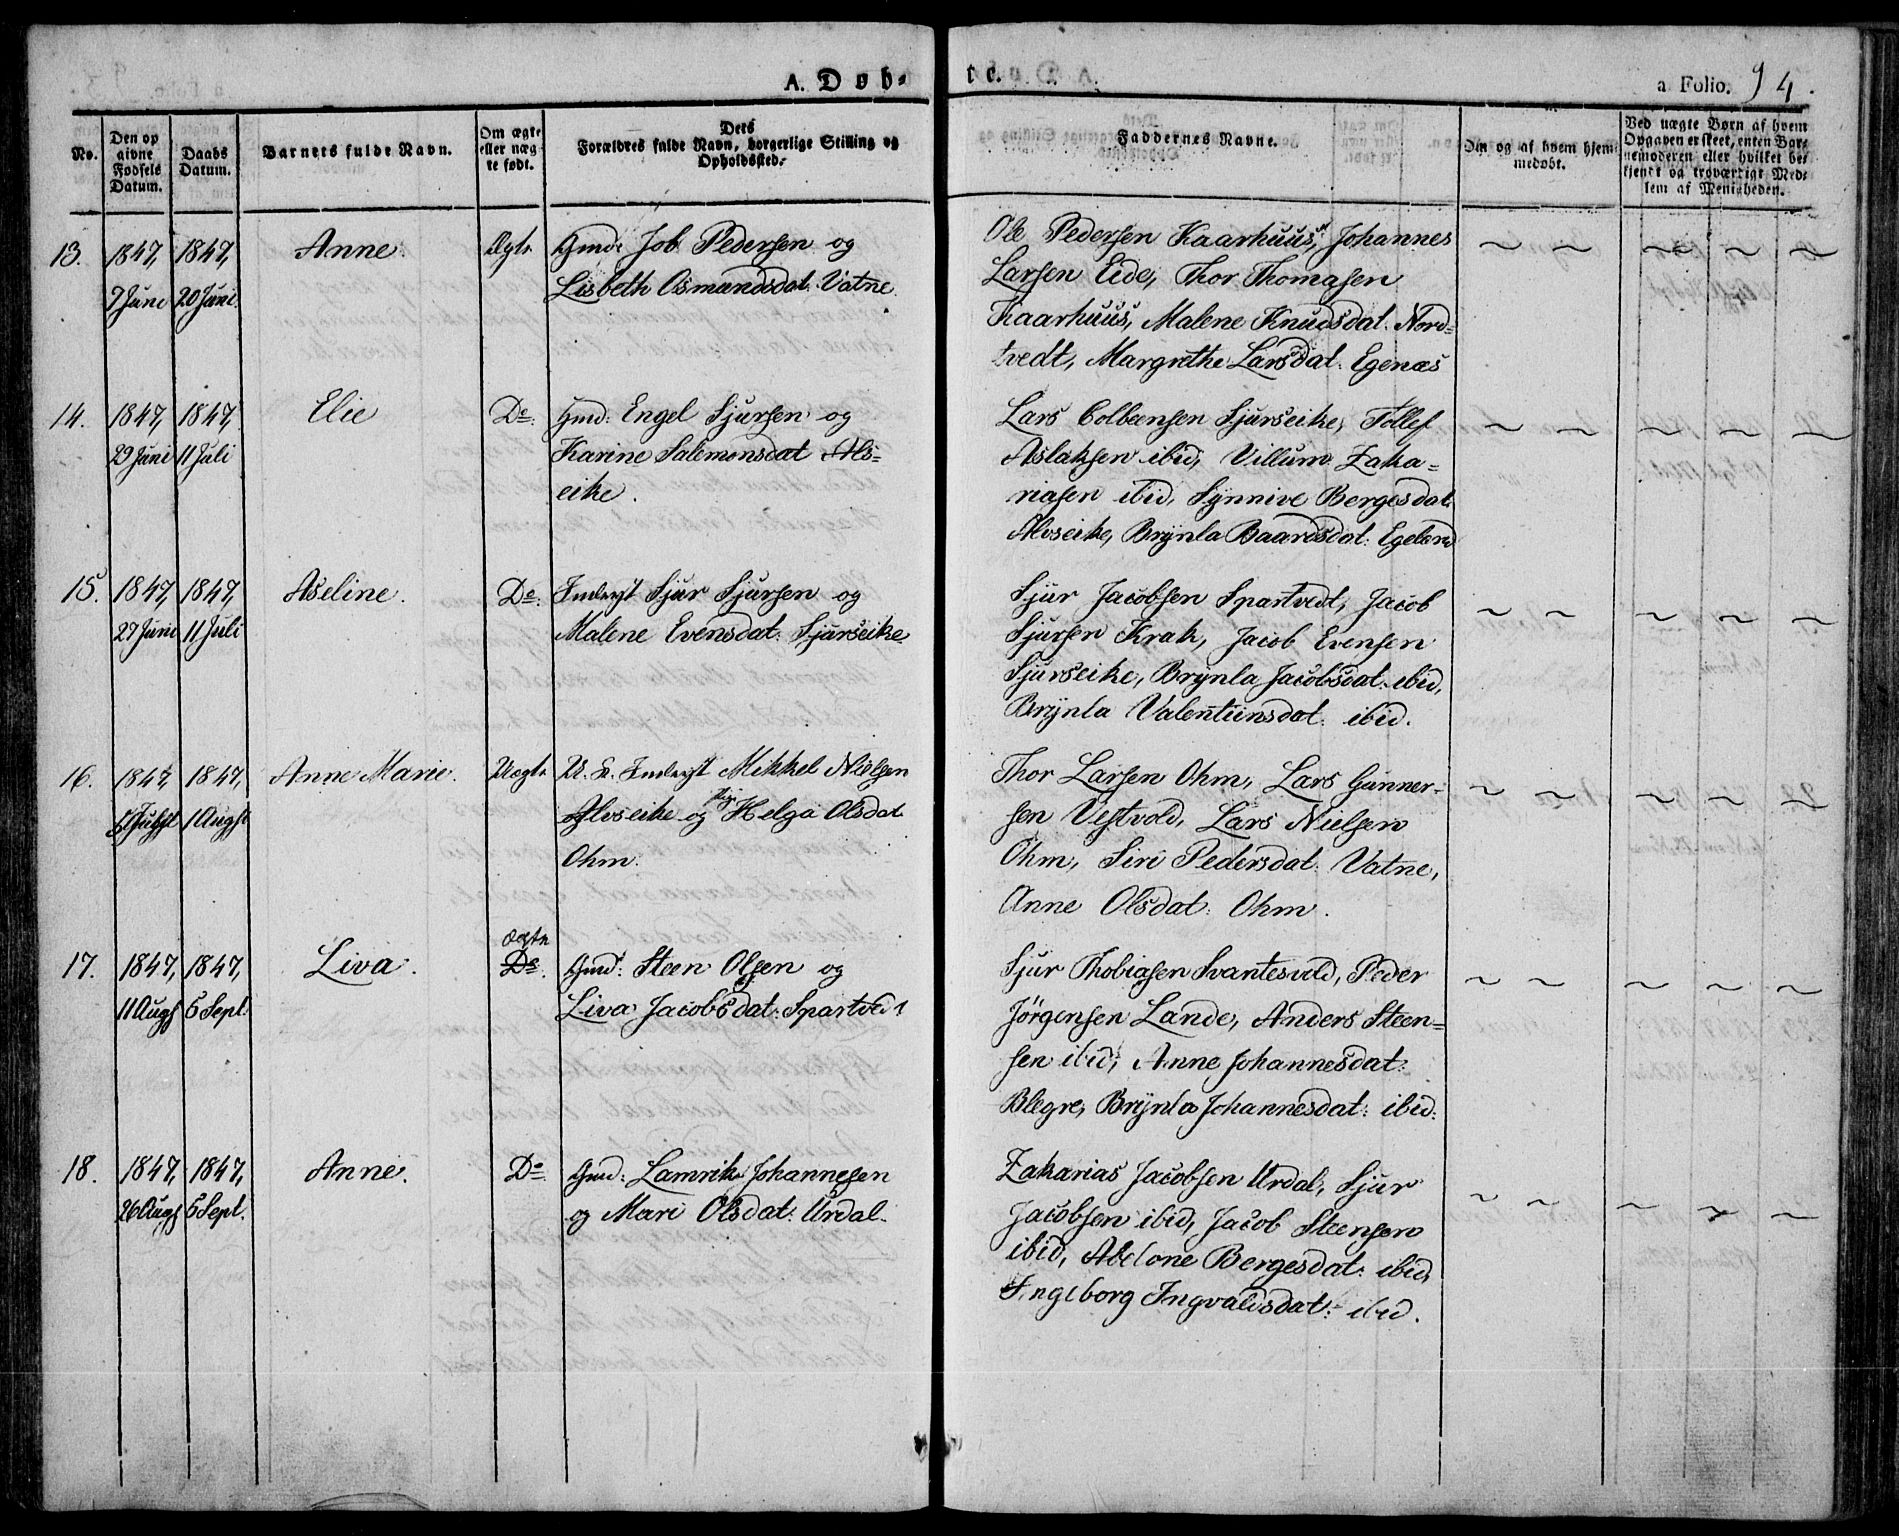 A. Døb-
te.
a Folio. 94.
No.
Den op
givne
Fødsels
Datum.
Daabs
Datum.
Barnets fulde Navn.
Om ægte
eller uæg-
te født.
Dets
Forældres fulde Navn, borgerlige Stilling og
Opholdssted.
Faddernes Navne.
Om og af hvem hjem-
medøbt.
Ved uægte Børn af hvem
Opgaven er skeet, enten Bar-
nemoderen eller hvilket be-
kjendt og troværdigt Med-
lem af Menigheden.
13.
1847,
7 Juni
1847,
20 Juni
Anne
Ægte
Gmd: Job Pedersen og
Lisbeth Osmundsdat. Vatne
Ole Pedersen Kaarhuus, Johannes
Larsen Eide, Thor Thomasen
Kaarhuus, Malene Knudsdat. Nord-
tvedt, Margrethe Larsdat. Egenæs
14.
1847,
29 Juni
1847,
11 Juli
Elie
Do.
Gmd: Engel Sjursen og
Karine Salemonsdat Als-
eike.
Lars Colbeensen Sjurseike, Tollef
Aslaksen ibid, Villum Zaka-
riasen ibid, Synnive Bergesdat.
Alvseike, Brynla Baardsdat: Egeland
15.
1847,
27 Juni
1847,
11 Juli
Aseline.
Do.
Inderst Sjur Sjursen og
Malene Evensdat: Sjurseike
Sjur Jacobsen Spartvedt, Jacob
Sjursen Krak, Jacob Evensen
Sjurseike, Brynla Jacobsdat. ibid,
Brynla Valentinsdat. ibid.
16.
1847,
Julyst
1847,
1 Augst
Anne Marie.
Uægte
U. K. Inderst Mikkel Nielsen
Alvseike og Pige Helga Olsdat
Ohm.
Thor Larsen Ohm, Lars Gunner-
sen Vestvold, Lars Nielsen
Ohm, Siri Pedersdat. Vatne,
Anne Olsdat: Ohm.
17.
1847,
11 Augs
1847,
5 Sept.
Liva.
ægte
Do.
Gmd: Steen Olsen og
Liva Jacobsdat: Spartvedt
Sjur Thobiasen Svantesvold, Peder
Jörgensen Lande, Anders Steen-
sen ibid, Anne Johannesdat:
Blegre, Brynla Johannesdat: ibid:
18.
1847,
26 Augs
1847,
5 Sept.
Anne.
Do
Gmd: Lamrik Johannesen
og Mari Olsdat: Urdal.
Zakarias Jacobsen Urdal, Sjur
Jacobsen ibid, Jacob Steensen
ibid, Abelone Bergesdat: ibid,
Ingeborg Ingvaldsdat: ibid.